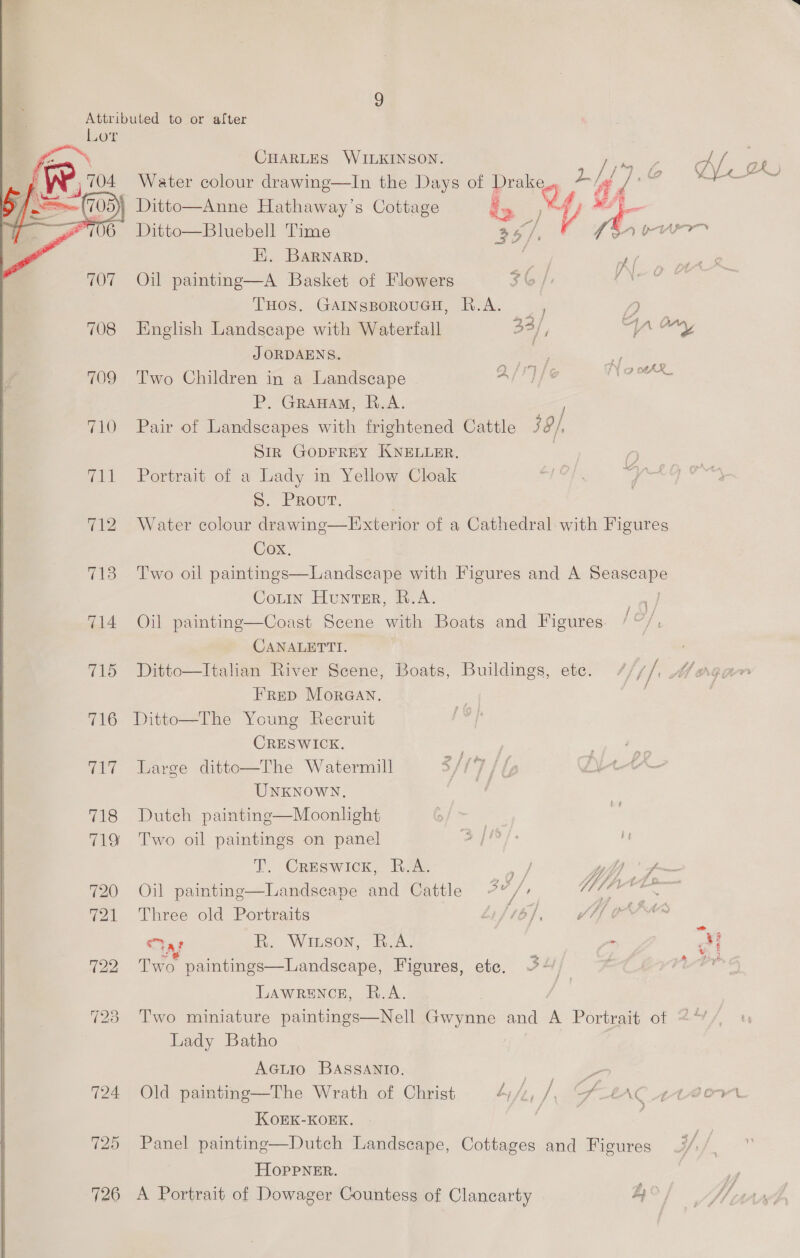 9
Attributed to or after
Lot
CHARLES WILKINSON.
704 Water colour drawing—In the Days of Drake
705 Ditto—Anne Hathaway's Cottage
706 Ditto—Bluebell Time 35/.
E. BARNARD.
707 Oil painting—A Basket of Flowers 36/.
THOS. GAINSBOROUGH, R.A.
708 English Landscape with Waterfall 33/,
JORDAENS.
709 Two Children in a Landscape 2/17/6
P. GRAHAM, R.A.
710 Pair of Landscapes with frightened Cattle
SIR GODFREY KNELLER.
711 Portrait of a Lady in Yellow Cloak
S. PROUT.
712 Water colour drawing—Exterior of a Cathedral with Figures
COX.
713 Two oil paintings—Landscape with Figures and A Seascape
COLIN HUNTER, R.A.
714 Oil painting—Coast Scene with Boats and Figures
CANALETTI.
715 Ditto—Italian River Scene, Boats, Buildings, etc. Morgan
FRED MORGAN.
716 Ditto—The Young Recruit
CRESWICK.
717 Large ditto—The Watermill 3/17/6
UNKNOWN.
718 Dutch painting—Moonlight
719 Two oil paintings on panel
T. CRESWICK, R.A.
720 Oil painting—Landscape and Cattle
721 Three old Portraits
R. WILSON, R.A.
722 Two paintings—Landscape, Figures, etc.
LAWRENCE, R.A.
723 Two miniature paintings—Nell Gwynne and A Portrait of
Lady Batho
AGLIO BASSANIO.
724 Old painting—The Wrath of Christ
KOEK-KOEK.
725 Panel painting—Dutch Landscape, Cottages and Figures
HOPPNER.
726 A Portrait of Dowager Countess of Clancarty